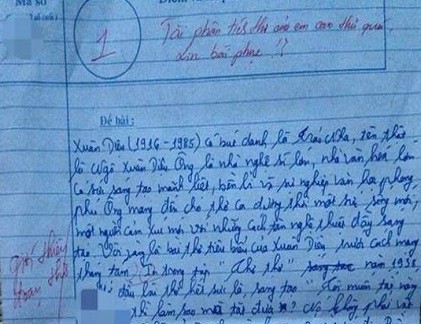 Mã số
1
Tài phân tích thơ của em cao thủ quá,
xin bái phục !?
Đề bài :
Xuân Diệu (1916 - 1985) có bút danh là Trảo Nha, tên thật
là Ngô Xuân Diệu. Ông là nhà nghệ sĩ lớn, nhà văn hóa lớn
có sức sáng tạo mãnh liệt, bền bỉ và sự nghiệp văn học phong
phú. Ông mang đến cho thơ ca đương thời một sức sống mới,
một nguồn cảm xúc mới với những cách tân nghệ thuật đầy sáng
tạo. Vội vàng là bài thơ tiêu biểu của Xuân Diệu trước cách mạng
tháng tám. In trong tập "Thơ thơ" năm 1938,
đầu bài thơ hết sức là sáng tạo "Tôi muốn tắt nắng
thì làm sao mà tắt được